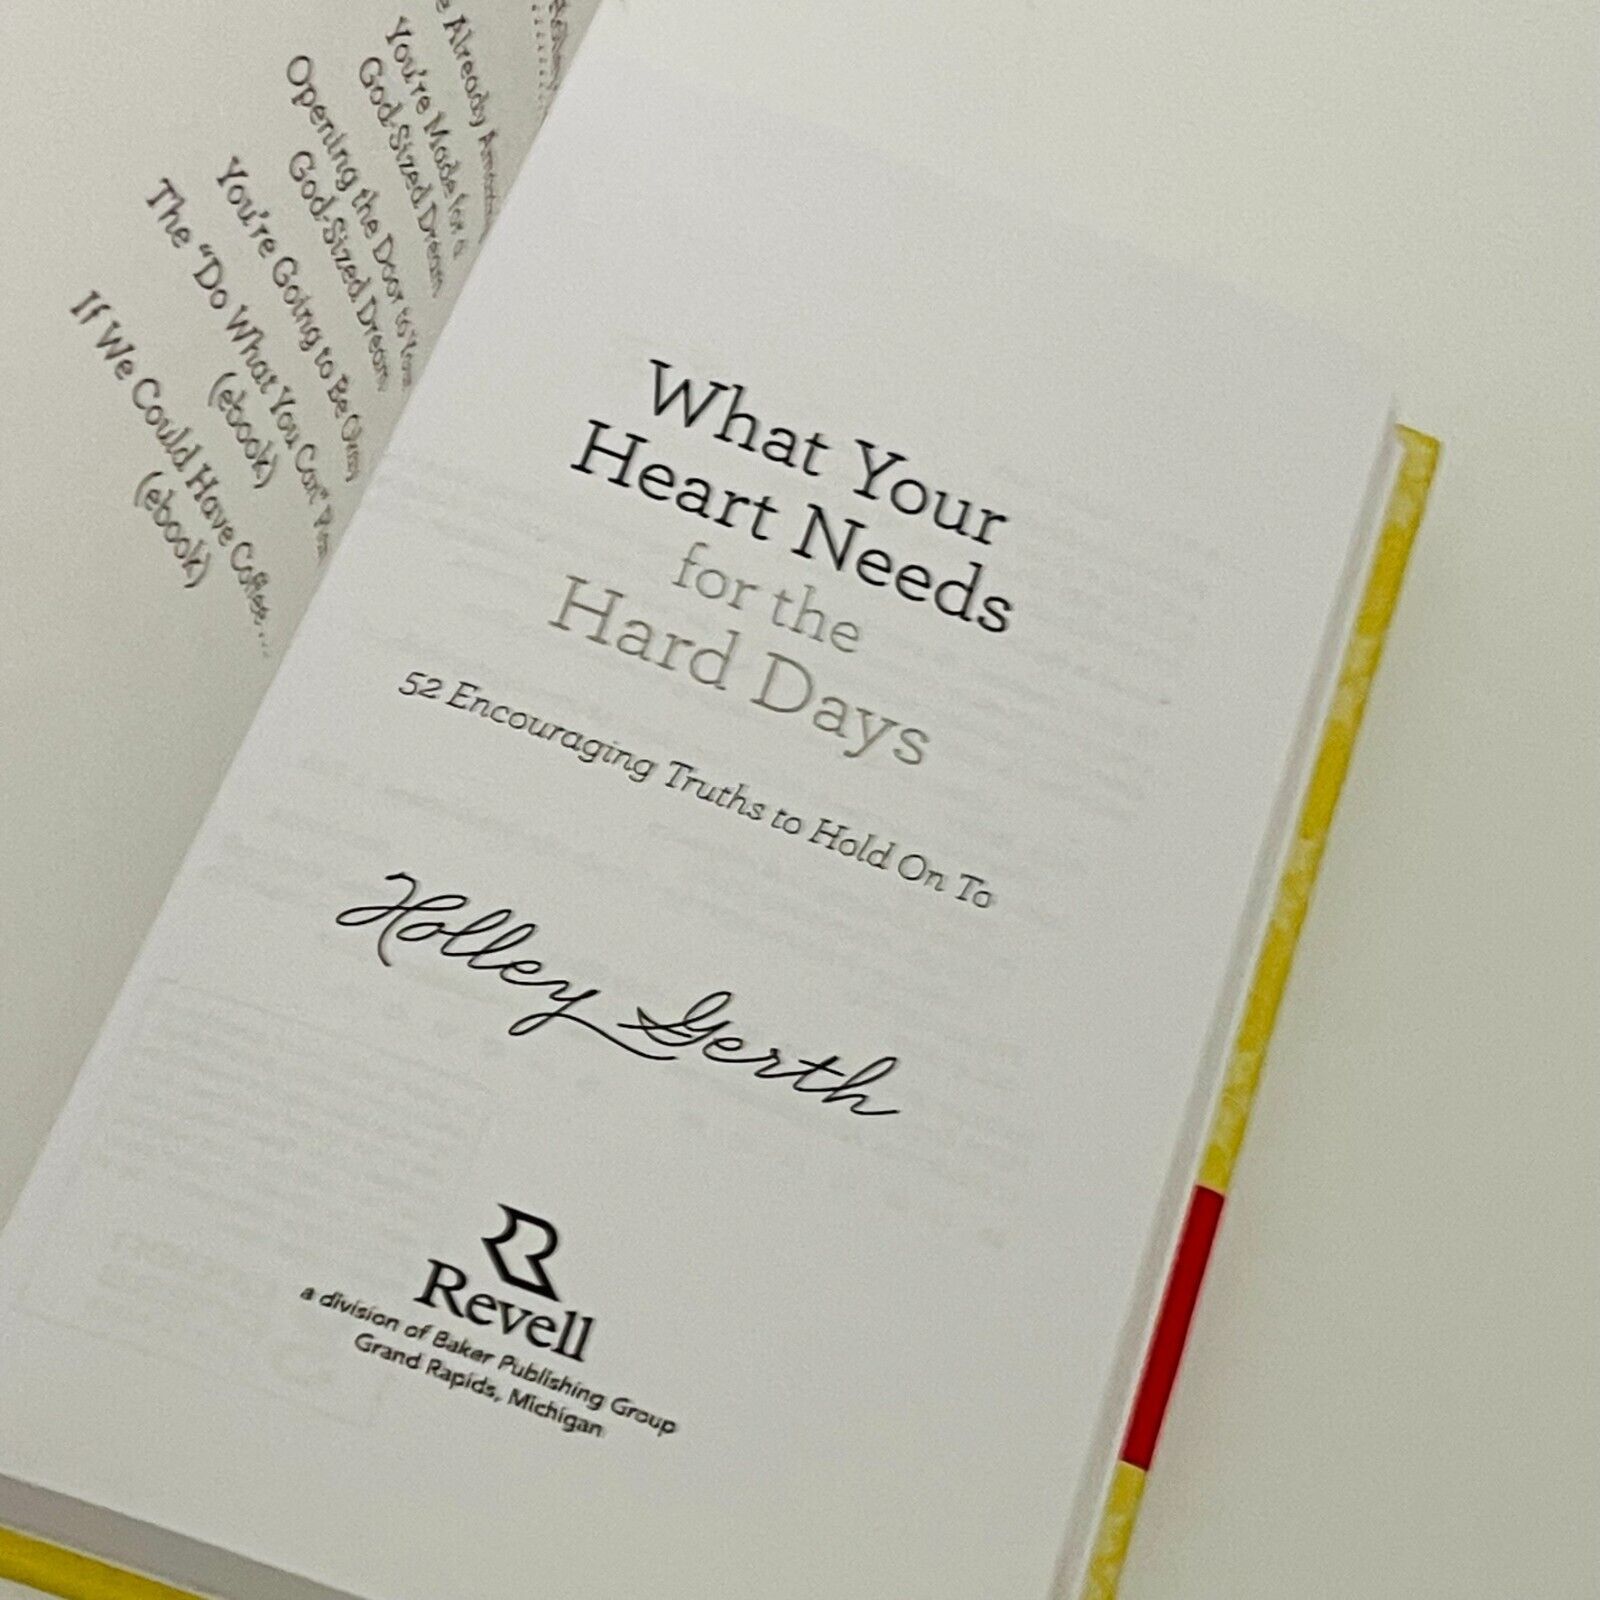 Already
You're Made for a
God-Sized Dream
Opening the Door to Your
God-Sized Dream
You're Going to Be Okay
The "Do What You Can"
(ebook)
If We Could Have Coffee . . .
(ebook)
What Your
Heart Needs
for the
Hard Days
52 Encouraging Truths to Hold On To
Holley Gerth
Revell
a division of Baker Publishing Group
Grand Rapids, Michigan